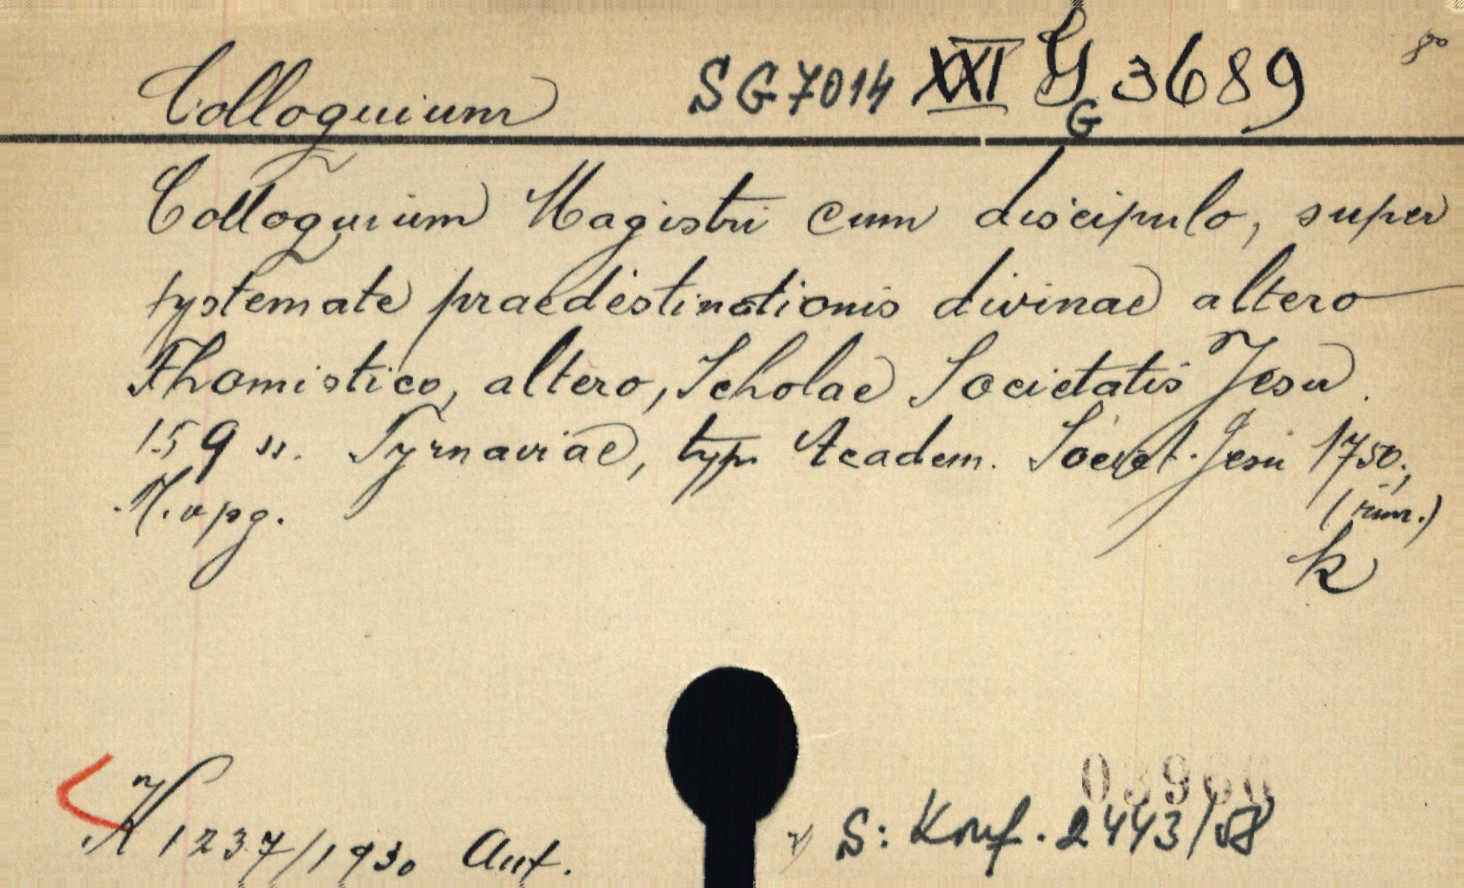 Colloquium SG7014 XXI G G 3689 8°
Colloquium Magistri cum discipulo, super
systemate praedestinationis divinae altero
Thomistico, altero, Scholae Societatis Jesu.
159 ss. Tyrnaviae, typ. Academ. Societ. Jesu 1750.,
(rum.)
k
K 1237/1930 Ant.
S: Konf. 2443/58